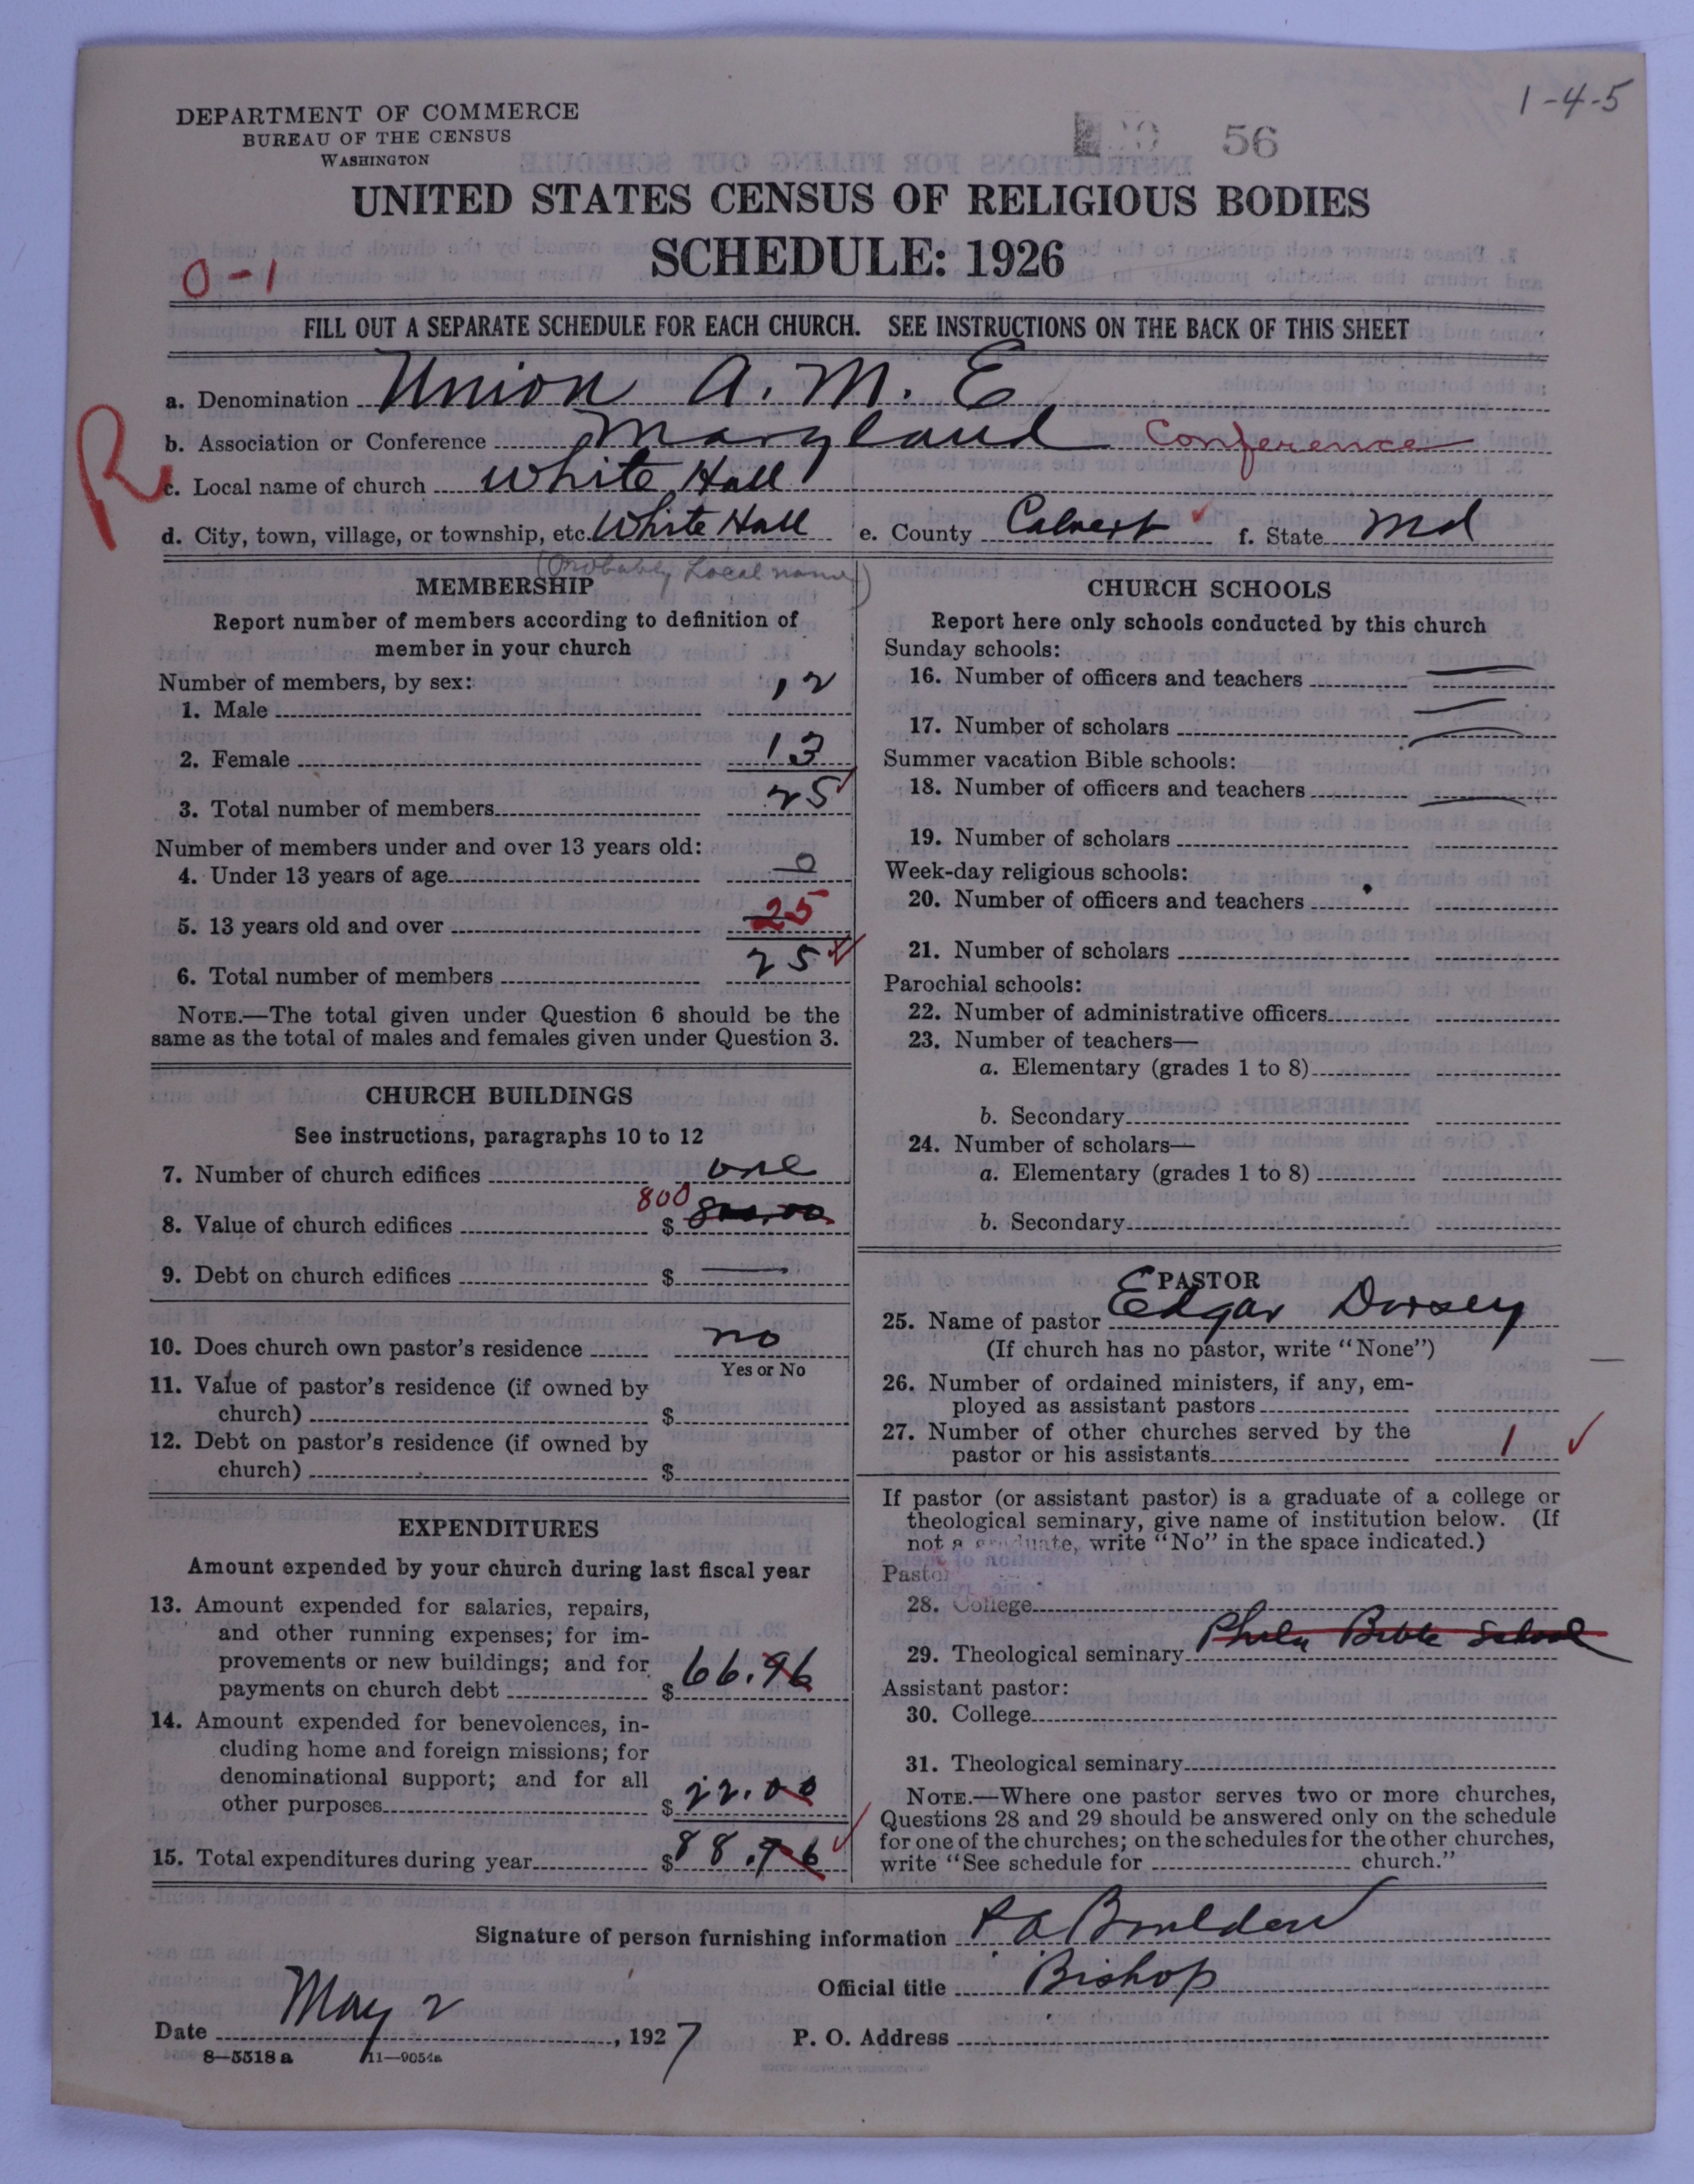 1-4-5
DEPARTMENT OF COMMERCE
BUREAU OF THE CENSUS
WASHINGTON
56
UNITED STATES CENSUS OF RELIGIOUS BODIES
SCHEDULE: 1926
0-1
FILL OUT A SEPARATE SCHEDULE FOR EACH CHURCH. SEE INSTRUCTIONS ON THE BACK OF THIS SHEET
a. Denomination Union A. M. E
b. Association or Conference Maryland Conference
R
c. Local name of church White Hall
d. City, town, village, or township, etc. White Hall e. County Calvert f. State Md
(Probably Local name)
MEMBERSHIP
Report number of members according to definition of
member in your church
Number of members, by sex:
1. Male 12
2. Female 13
3. Total number of members 25
Number of members under and over 13 years old:
4. Under 13 years of age 0
5. 13 years old and over 25
6. Total number of members 25
NOTE.—The total given under Question 6 should be the
same as the total of males and females given under Question 3.
CHURCH BUILDINGS
See instructions, paragraphs 10 to 12
7. Number of church edifices one
8. Value of church edifices 800 $ 800.00
9. Debt on church edifices $ —
10. Does church own pastor's residence no
Yes or No
11. Value of pastor's residence (if owned by
church) $
12. Debt on pastor's residence (if owned by
church) $
EXPENDITURES
Amount expended by your church during last fiscal year
13. Amount expended for salaries, repairs,
and other running expenses; for im-
provements or new buildings; and for
payments on church debt $ 66.96
14. Amount expended for benevolences, in-
cluding home and foreign missions; for
denominational support; and for all
other purposes $ 22.00
15. Total expenditures during year $ 88.96
CHURCH SCHOOLS
Report here only schools conducted by this church
Sunday schools:
16. Number of officers and teachers —
17. Number of scholars —
Summer vacation Bible schools:
18. Number of officers and teachers —
19. Number of scholars
Week-day religious schools:
20. Number of officers and teachers
21. Number of scholars
Parochial schools:
22. Number of administrative officers
23. Number of teachers—
a. Elementary (grades 1 to 8)
b. Secondary
24. Number of scholars—
a. Elementary (grades 1 to 8)
b. Secondary
PASTOR
25. Name of pastor Edgar Dorsey
(If church has no pastor, write "None")
26. Number of ordained ministers, if any, em-
ployed as assistant pastors
27. Number of other churches served by the
pastor or his assistants 1 ✓
If pastor (or assistant pastor) is a graduate of a college or
theological seminary, give name of institution below. (If
not a graduate, write "No" in the space indicated.)
Pastor
28. College
29. Theological seminary Phila Bible School
Assistant pastor:
30. College
31. Theological seminary
NOTE.—Where one pastor serves two or more churches,
Questions 28 and 29 should be answered only on the schedule
for one of the churches; on the schedules for the other churches,
write "See schedule for church."
Signature of person furnishing information Boulden
Official title Bishop
Date May 2, 1927 P. O. Address
8—5518 a 11—9054a